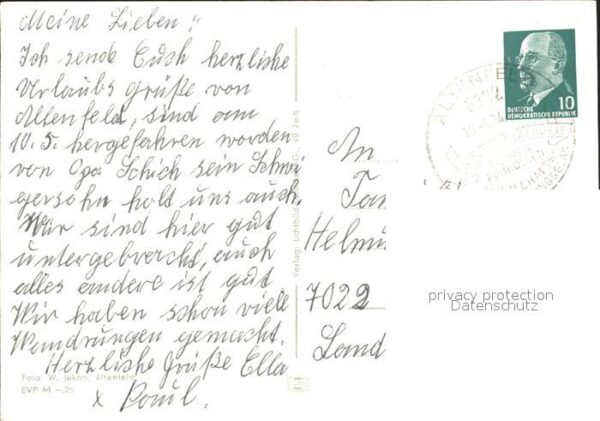 Meine Lieben!
Ich sende Euch herzliche
Urlaubsgrüße von
Altenfeld, sind am
10.5. hergefahren worden
von Opa Schich sein Schwi
gersohn holt uns auch.
Wir sind hier gut
untergebracht, auch
alles andere ist gut
Wir haben schon viele
Wandrungen gemacht.
Herzliche Grüße Ella
x Poul.
Foto. W. Jakob, Altenfeld
EVP M –.25
Verlag: Lichtbild
An
Fam
Helmu
7022
Land
ALTENFELD
10
DEUTSCHE
DEMOKRATISCHE REPUBLIK
privacy protection
Datenschutz